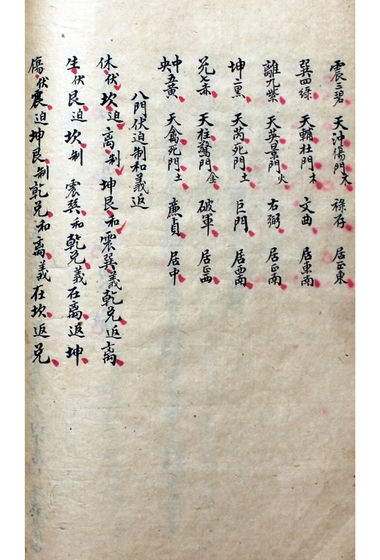 震三碧 天冲傷門木 祿存 居正東
巽四綠 天輔杜門木 文曲 居東南
離九紫 天英景門火 右弼 居正南
坤二黑 天芮死門土 巨門 居西南
兌七赤 天柱驚門金 破軍 居正西
中央五黃 天禽死門土 廉貞 居中
八門伏迫制和義返
休伏坎迫离制 坤艮和震巽義乾兌返离
生伏艮迫坎制 震巽和乾兌義在离返坤
傷伏震迫坤艮制乾兌和离義在坎返兌